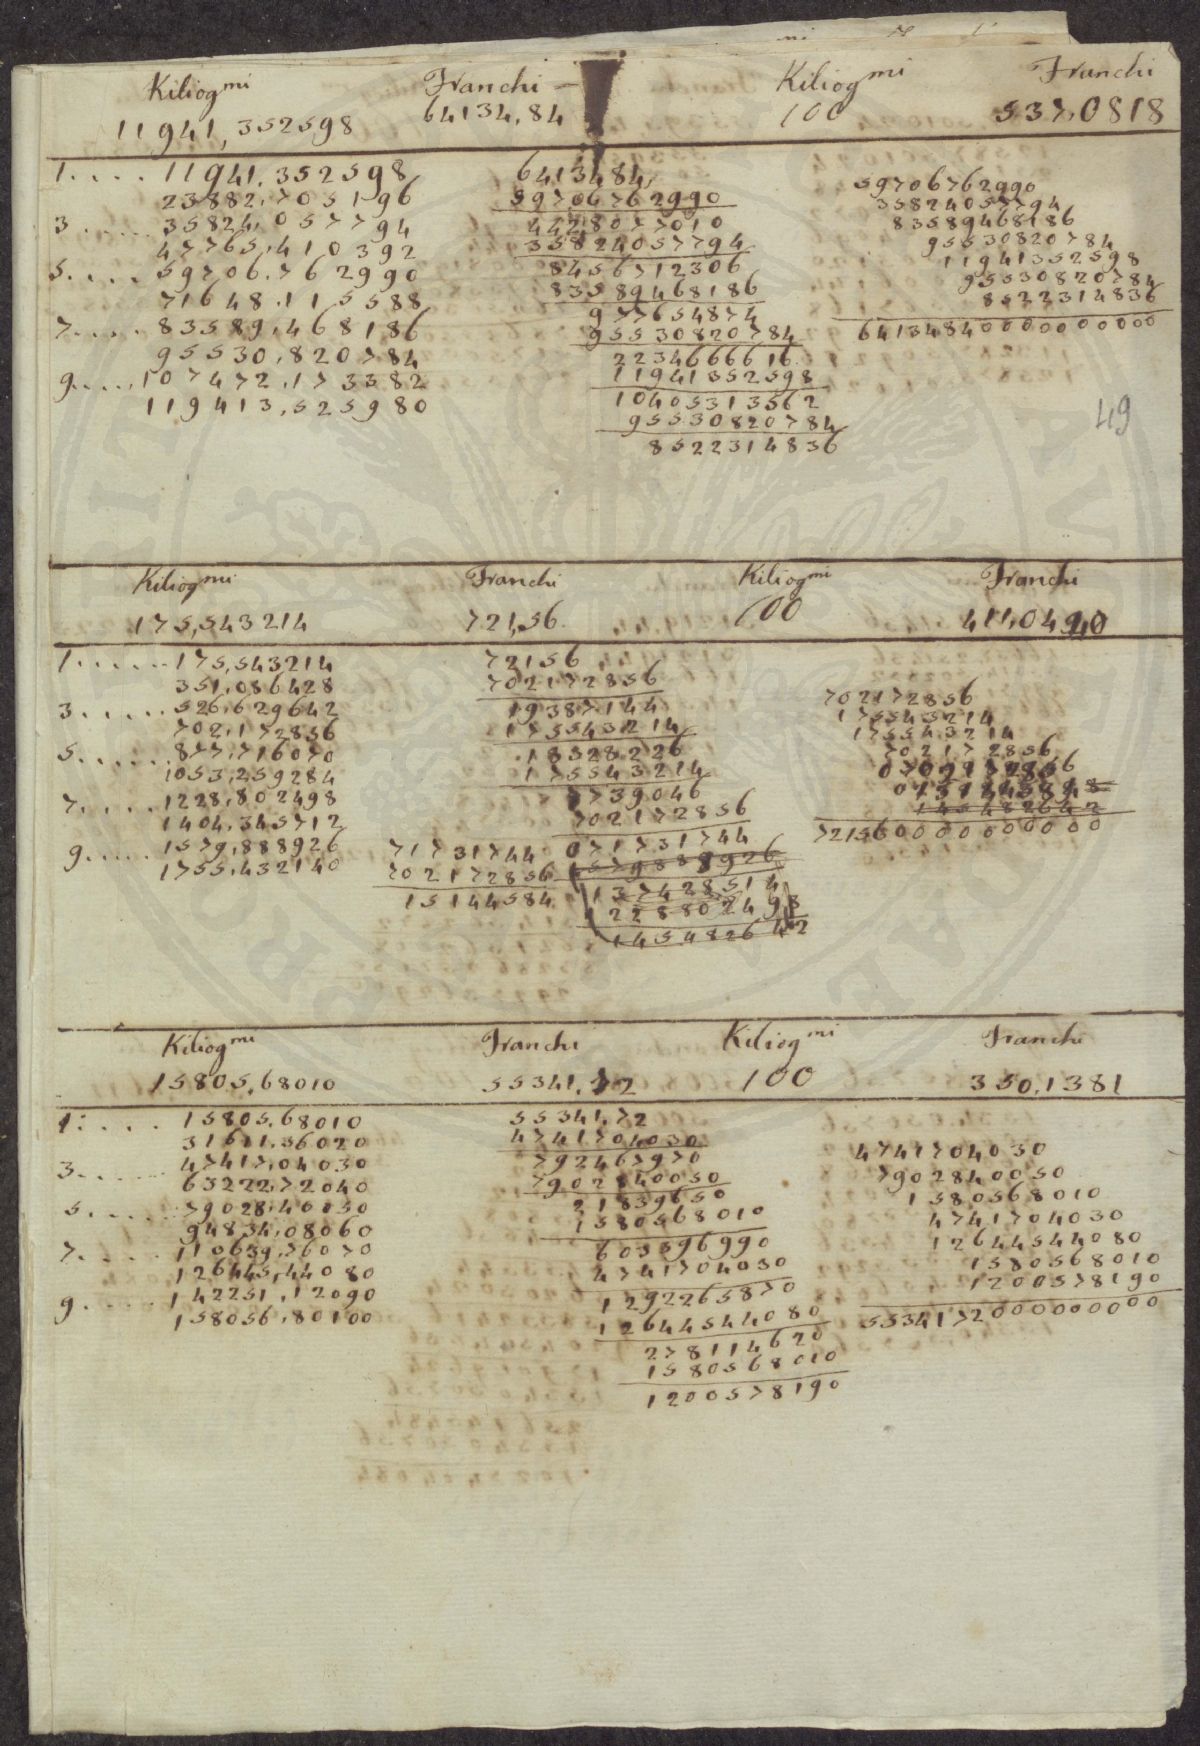 Kiliog mi Franchi – Kiliog mi Franchi
11941,352598 64134,84 100 537,0818
1.... 11941,352598
23882,705196
3..... 35824,057794
47765,410392
5.... 59706,762990
71648,115588
7.... 83589,468186
95530,820784
9.... 107472,173382
119413,525980
6413484,
59706762990
4428077010
35824057794
8456712306
83589468186
977654874
95530820784
2234666616
11941352598
10405313562
95530820784
8522314836
59706762990
35824057794
83589468186
95530820784
11941352598
95530820784
8522314836
64134840000000000
49
Kiliog mi Franchi Kiliog mi Franchi
175,543214 721,56 100 411,0490
1...... 175,543214
351,086428
3...... 526,629642
702,172856
5...... 877,716070
1053,259284
7..... 1228,802498
1404,345712
9..... 1579,888926
1755,432140
72156
702172856
19387144
175543214
18328226
175543214
7739046
702172856
71731744 071731744
702172856 1579888926
15144584 137428514
1228802498
145482642
702172856
175543214
175543214
702172856
145482642
721560000000000
Kiliog mi Franchi Kiliog mi Franchi
15805,68010 55341,72 100 350,1381
1:.... 15805,68010
31611,36020
3...... 47417,04030
63222,72040
5....... 79028,40050
94834,08060
7..... 110639,76070
126445,44080
9..... 142251,12090
158056,80100
55341,72
4741704030
792467970
7902840050
21839650
1580568010
603396990
4741704030
1292265870
12644544080
278114620
1580568010
1200578190
4741704030
7902840050
1580568010
4741704030
12644544080
1580568010
1200578190
55341720000000000